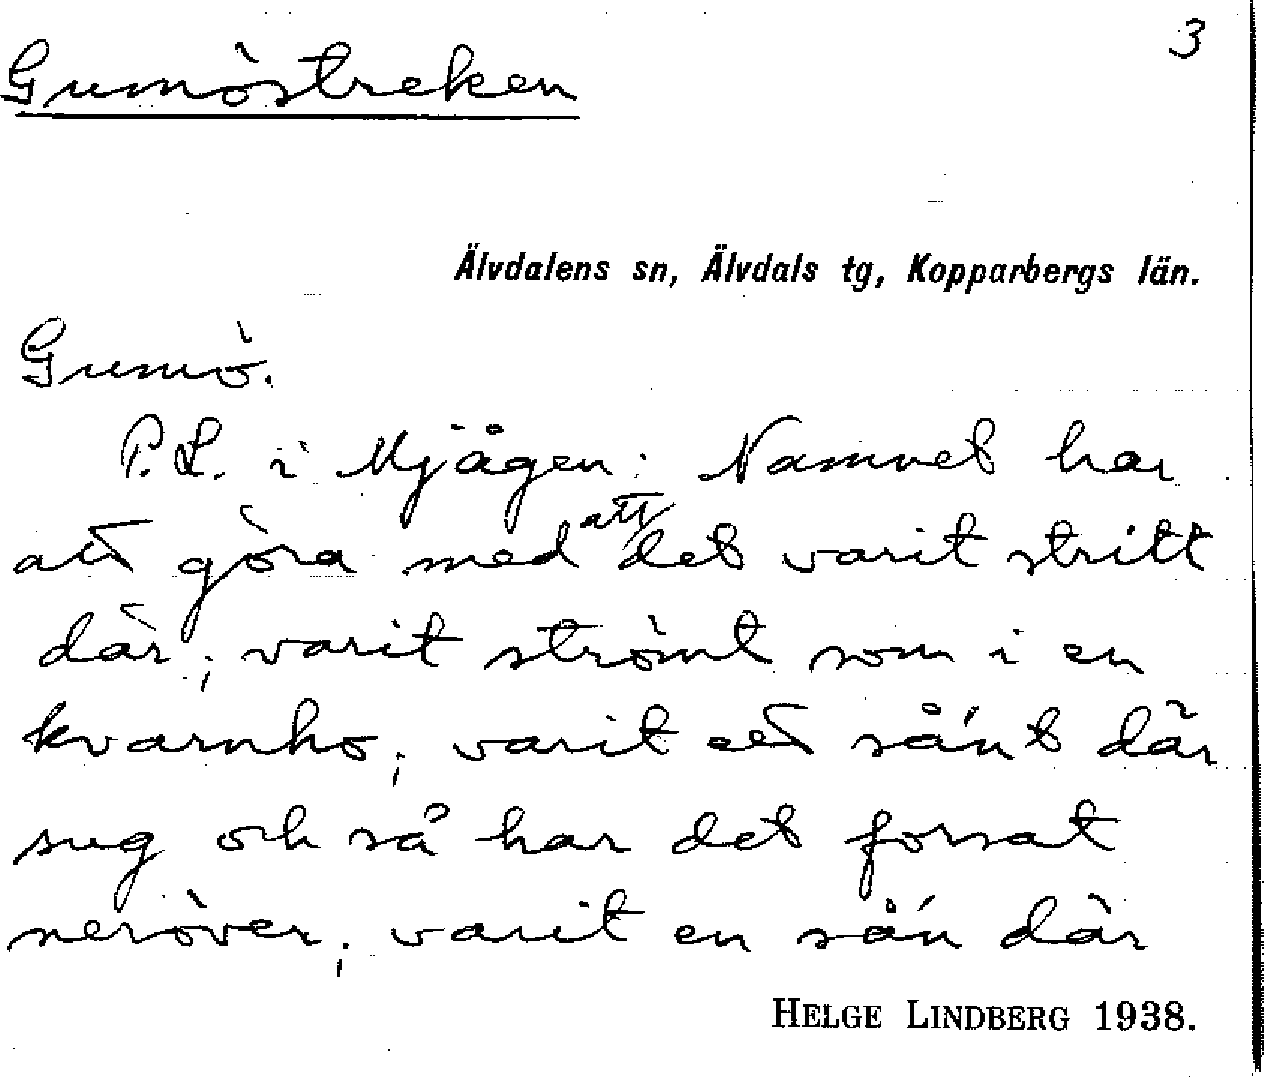 3
Gumöstreken
Älvdalens sn, Älvdals tg, Kopparbergs län.
Gumö.
P. L. i Mjågen: Namnet har
att göra med att det varit stritt
där; varit strömt som i en
kvarnho; varit ett sån't där
sug och så har det forsat
neröver; varit en sån där
HELGE LINDBERG 1938.